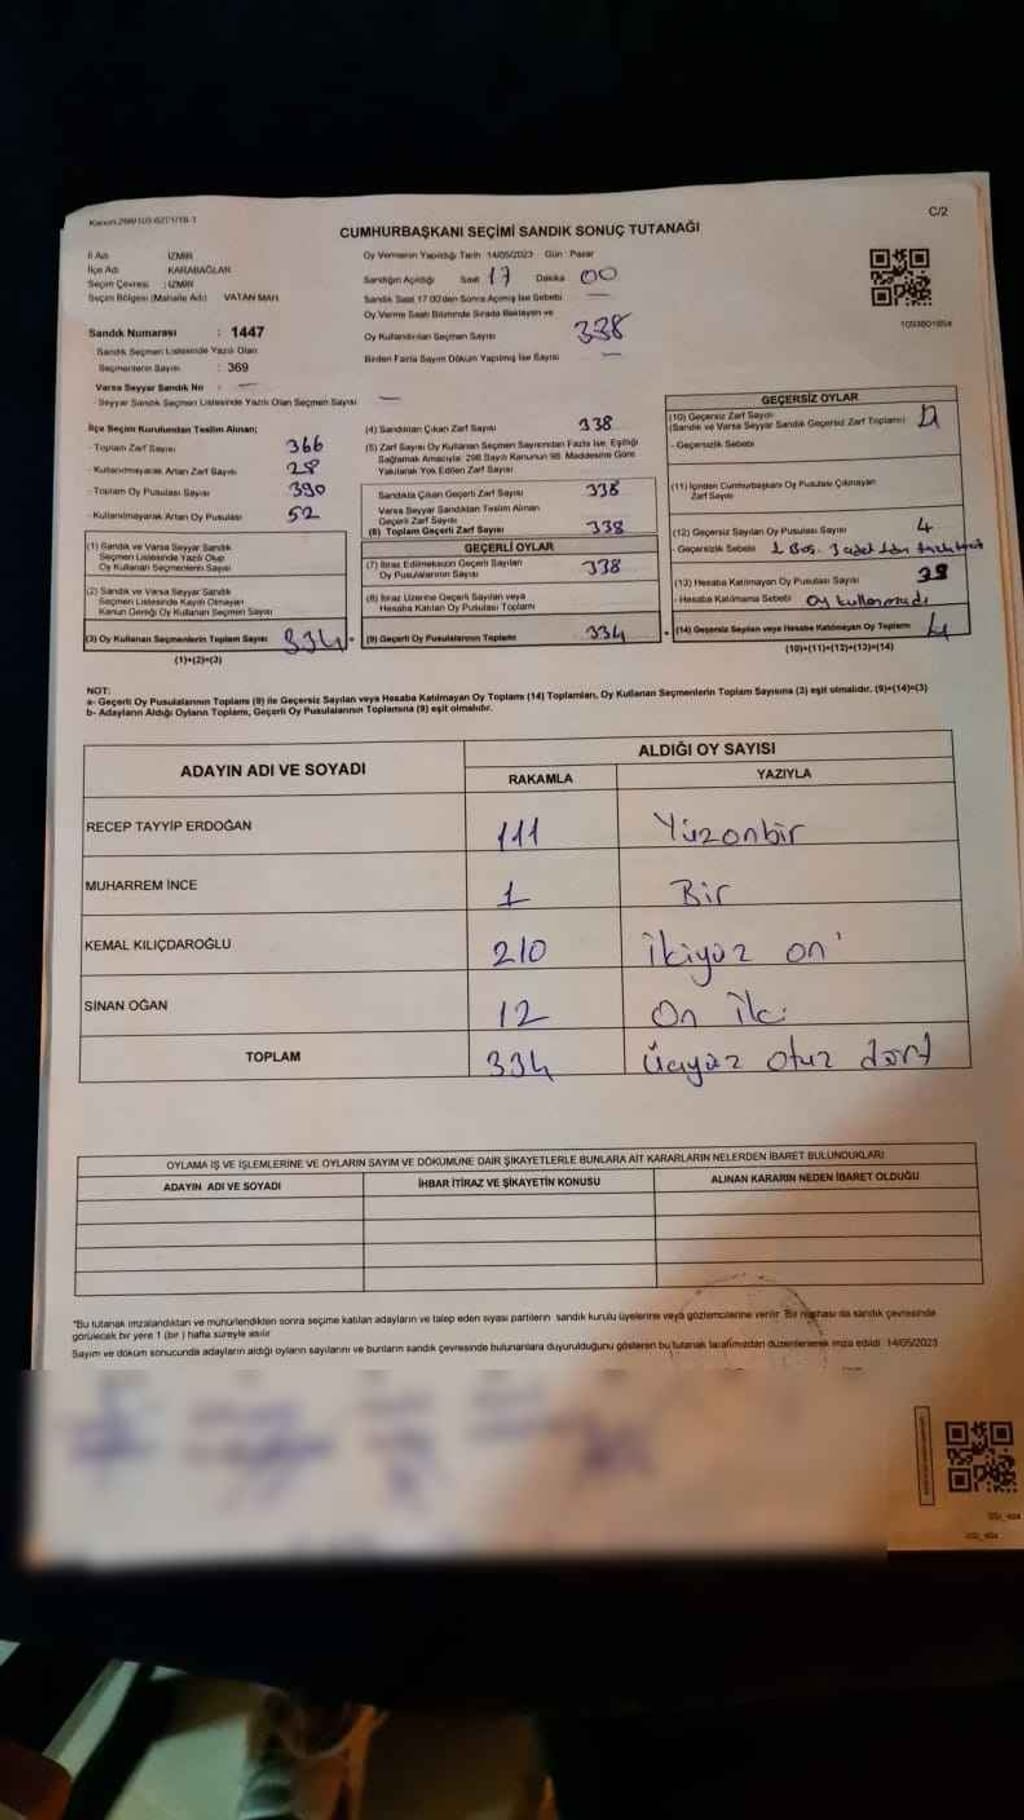 C/2
CUMHURBAŞKANI SEÇİMİ SANDIK SONUÇ TUTANAĞI
İl Adı İZMİR
İlçe Adı KARABAĞLAR
Seçim Çevresi : İZMİR
Seçim Bölgesi (Mahalle Adı) VATAN MAH.
Sandık Numarası : 1447
Sandık Seçmen Listesinde Yazılı Olan
Seçmenlerin Sayısı : 369
Varsa Seyyar Sandık No : —
Seyyar Sandık Seçmen Listesinde Yazılı Olan Seçmen Sayısı —
Oy Vermenin Yapıldığı Tarih 14/05/2023 Gün : Pazar
Sandığın Açıldığı Saat 17 Dakika 00
Sandık Saat 17.00'den Sonra Açılmış İse Sebebi —
Oy Verme Saati Bitiminde Sırada Bekleyen ve
Oy Kullandırılan Seçmen Sayısı 338
Birden Fazla Sayım Döküm Yapılmış İse Sayısı —
İlçe Seçim Kurulundan Teslim Alınan;
- Toplam Zarf Sayısı 366
- Kullanılmayarak Artan Zarf Sayısı 28
- Toplam Oy Pusulası Sayısı 390
- Kullanılmayarak Artan Oy Pusulası 52
(1) Sandık ve Varsa Seyyar Sandık
Seçmen Listesinde Yazılı Olup
Oy Kullanan Seçmenlerin Sayısı
(2) Sandık ve Varsa Seyyar Sandık
Seçmen Listesinde Kayıtlı Olmayan
Kanun Gereği Oy Kullanan Seçmen Sayısı
(3) Oy Kullanan Seçmenlerin Toplam Sayısı 334
(1)+(2)=(3)
(4) Sandıktan Çıkan Zarf Sayısı 338
(5) Zarf Sayısı Oy Kullanan Seçmen Sayısından Fazla İse, Eşitliği
Sağlamak Amacıyla 298 Sayılı Kanunun 98. Maddesine Göre
Yakılarak Yok Edilen Zarf Sayısı
Sandıkta Çıkan Geçerli Zarf Sayısı 338
Varsa Seyyar Sandıktan Teslim Alınan
Geçerli Zarf Sayısı
(6) Toplam Geçerli Zarf Sayısı 338
GEÇERLİ OYLAR
(7) İtiraz Edilmeksizin Geçerli Sayılan
Oy Pusulalarının Sayısı 338
(8) İtiraz Üzerine Geçerli Sayılan veya
Hesaba Katılan Oy Pusulası Toplamı
(9) Geçerli Oy Pusulalarının Toplamı 334
GEÇERSİZ OYLAR
(10) Geçersiz Zarf Sayısı
(Sandık ve Varsa Seyyar Sandık Geçersiz Zarf Toplamı)
- Geçersizlik Sebebi
(11) İçinden Cumhurbaşkanı Oy Pusulası Çıkmayan
Zarf Sayısı
(12) Geçersiz Sayılan Oy Pusulası Sayısı 4
- Geçersizlik Sebebi 1 Boş. 3 adet
(13) Hesaba Katılmayan Oy Pusulası Sayısı
- Hesaba Katılmama Sebebi oy kullanmadı
(14) Geçersiz Sayılan veya Hesaba Katılmayan Oy Toplamı 4
(10)+(11)+(12)+(13)=(14)
NOT:
a- Geçerli Oy Pusulalarının Toplamı (9) ile Geçersiz Sayılan veya Hesaba Katılmayan Oy Toplamı (14) Toplamları, Oy Kullanan Seçmenlerin Toplam Sayısına (3) eşit olmalıdır. (9)+(14)=(3)
b- Adayların Aldığı Oyların Toplamı, Geçerli Oy Pusulalarının Toplamına (9) eşit olmalıdır.
ADAYIN ADI VE SOYADI
ALDIĞI OY SAYISI
RAKAMLA YAZIYLA
RECEP TAYYİP ERDOĞAN 111 Yüzonbir
MUHARREM İNCE 1 Bir
KEMAL KILIÇDAROĞLU 210 ikiyüz on
SİNAN OĞAN 12 On iki
TOPLAM 334 Üçyüz otuz dört
OYLAMA İŞ VE İŞLEMLERİNE VE OYLARIN SAYIM VE DÖKÜMÜNE DAİR ŞİKAYETLERLE BUNLARA AİT KARARLARIN NELERDEN İBARET BULUNDUKLARI
ADAYIN ADI VE SOYADI İHBAR İTİRAZ VE ŞİKAYETİN KONUSU ALINAN KARARIN NEDEN İBARET OLDUĞU
*Bu tutanak imzalandıktan ve mühürlendikten sonra seçime katılan adayların ve talep eden siyasi partilerin sandık kurulu üyelerine veya gözlemcilerine verilir. Bir nüshası da sandık çevresinde
görülecek bir yere 1 (bir) hafta süreyle asılır
Sayım ve döküm sonucunda adayların aldığı oyların sayılarını ve bunların sandık çevresinde bulunanlara duyurulduğunu gösteren bu tutanak tarafımızdan düzenlenerek imza edildi. 14/05/2023